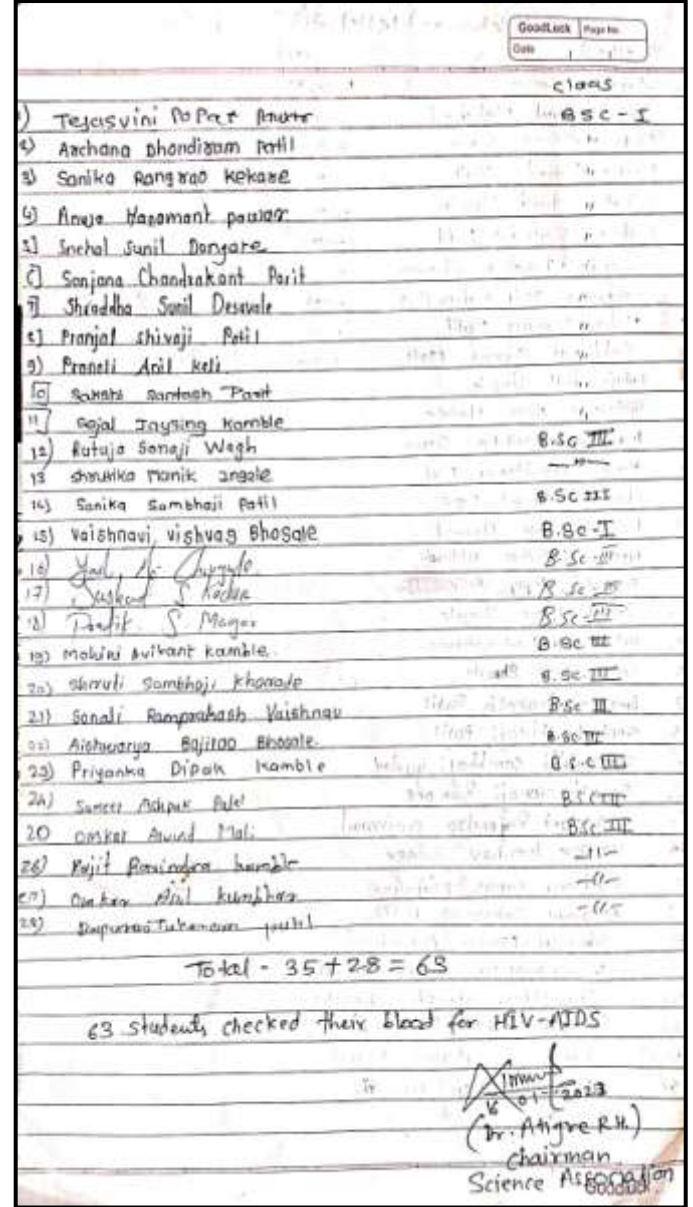 GoodLuck Page No.
Date
claas
1) Tejasvini PoPat BSC - I
2) Archana Dhondiram Patil
3) Sanika Rangrao Kekare
4) Hanamant pawar
5] Snehal Sunil Dongare
6] Sanjana Chandrakant Parit
7] Shraddha Sunil Desavale
8] Pranjal Shivaji Patil
9) Pranali Anil Keli
10 Sakshi Santosh Parit
11 Sejal Jaysing Kamble
12) Rutuja Sonaji Wagh B.SC III
13 shrutika Manik Ingale —"—
14) Sanika Sambhaji Patil B.Sc III
15) Vaishnavi vishvas Bhosale B.Sc-I
16) B.Sc-III
17) S. B.Sc-III
18) Pratik S. Magar B.Sc-III
19) Mohini Kamble B.Sc III
20) Sambhaji B.Sc III
21) Sonali Ramprakash Vaishnav B.Sc III
22) Aishwarya Bajirao Bhosale B.Sc III
23) Priyanka Dipak Kamble B.S.C III
24) B.SC III
20 Omkar Arvind Mali B.Sc III
26) Ravindra Kamble -11-
27) Omkar Anil Kumbhar -11-
28) Tukaram patil -11-
Total - 35 + 28 = 63
63 Students checked their blood for HIV-AIDS
16 01 2023
(Dr. Atigre R.H.)
Chairman
Science Association
GoodLuck